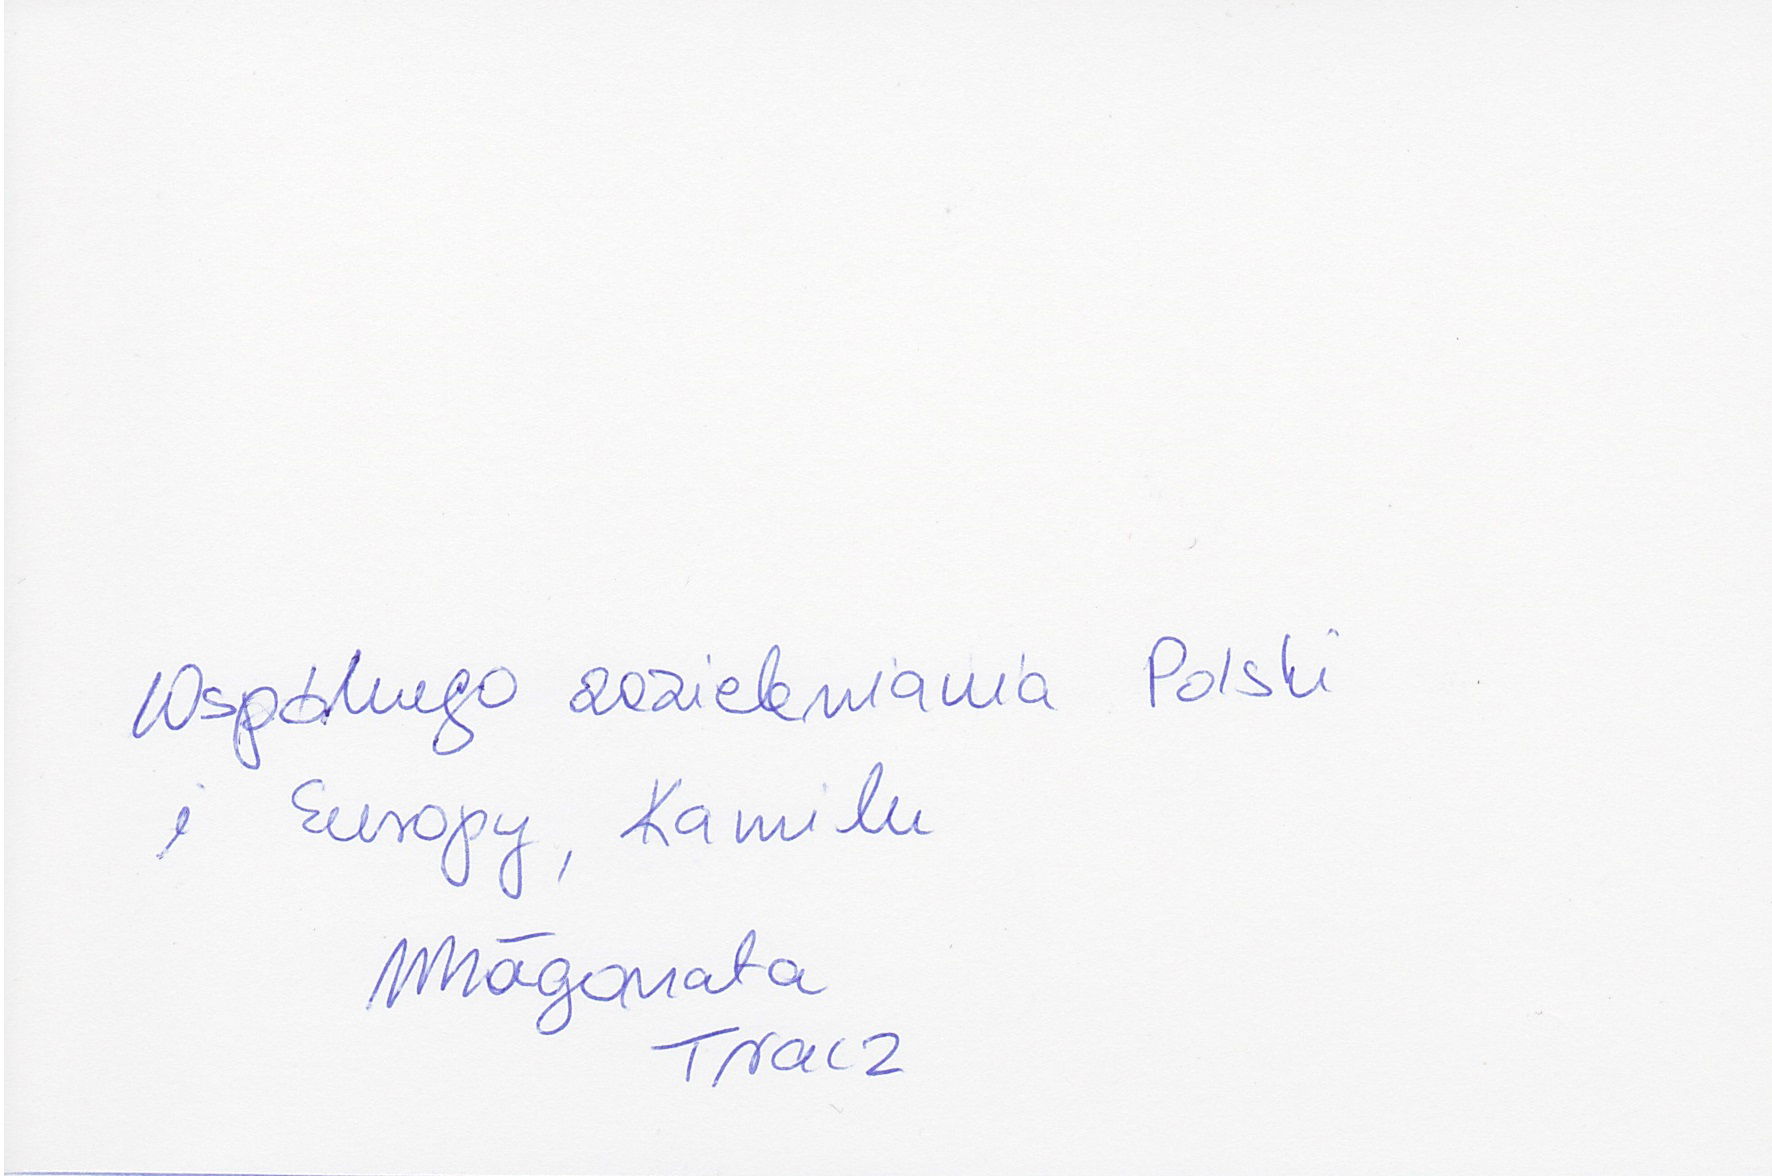 Wspólnego zazieleniania Polski
i Europy, Kamilu
Małgorzata
Tracz